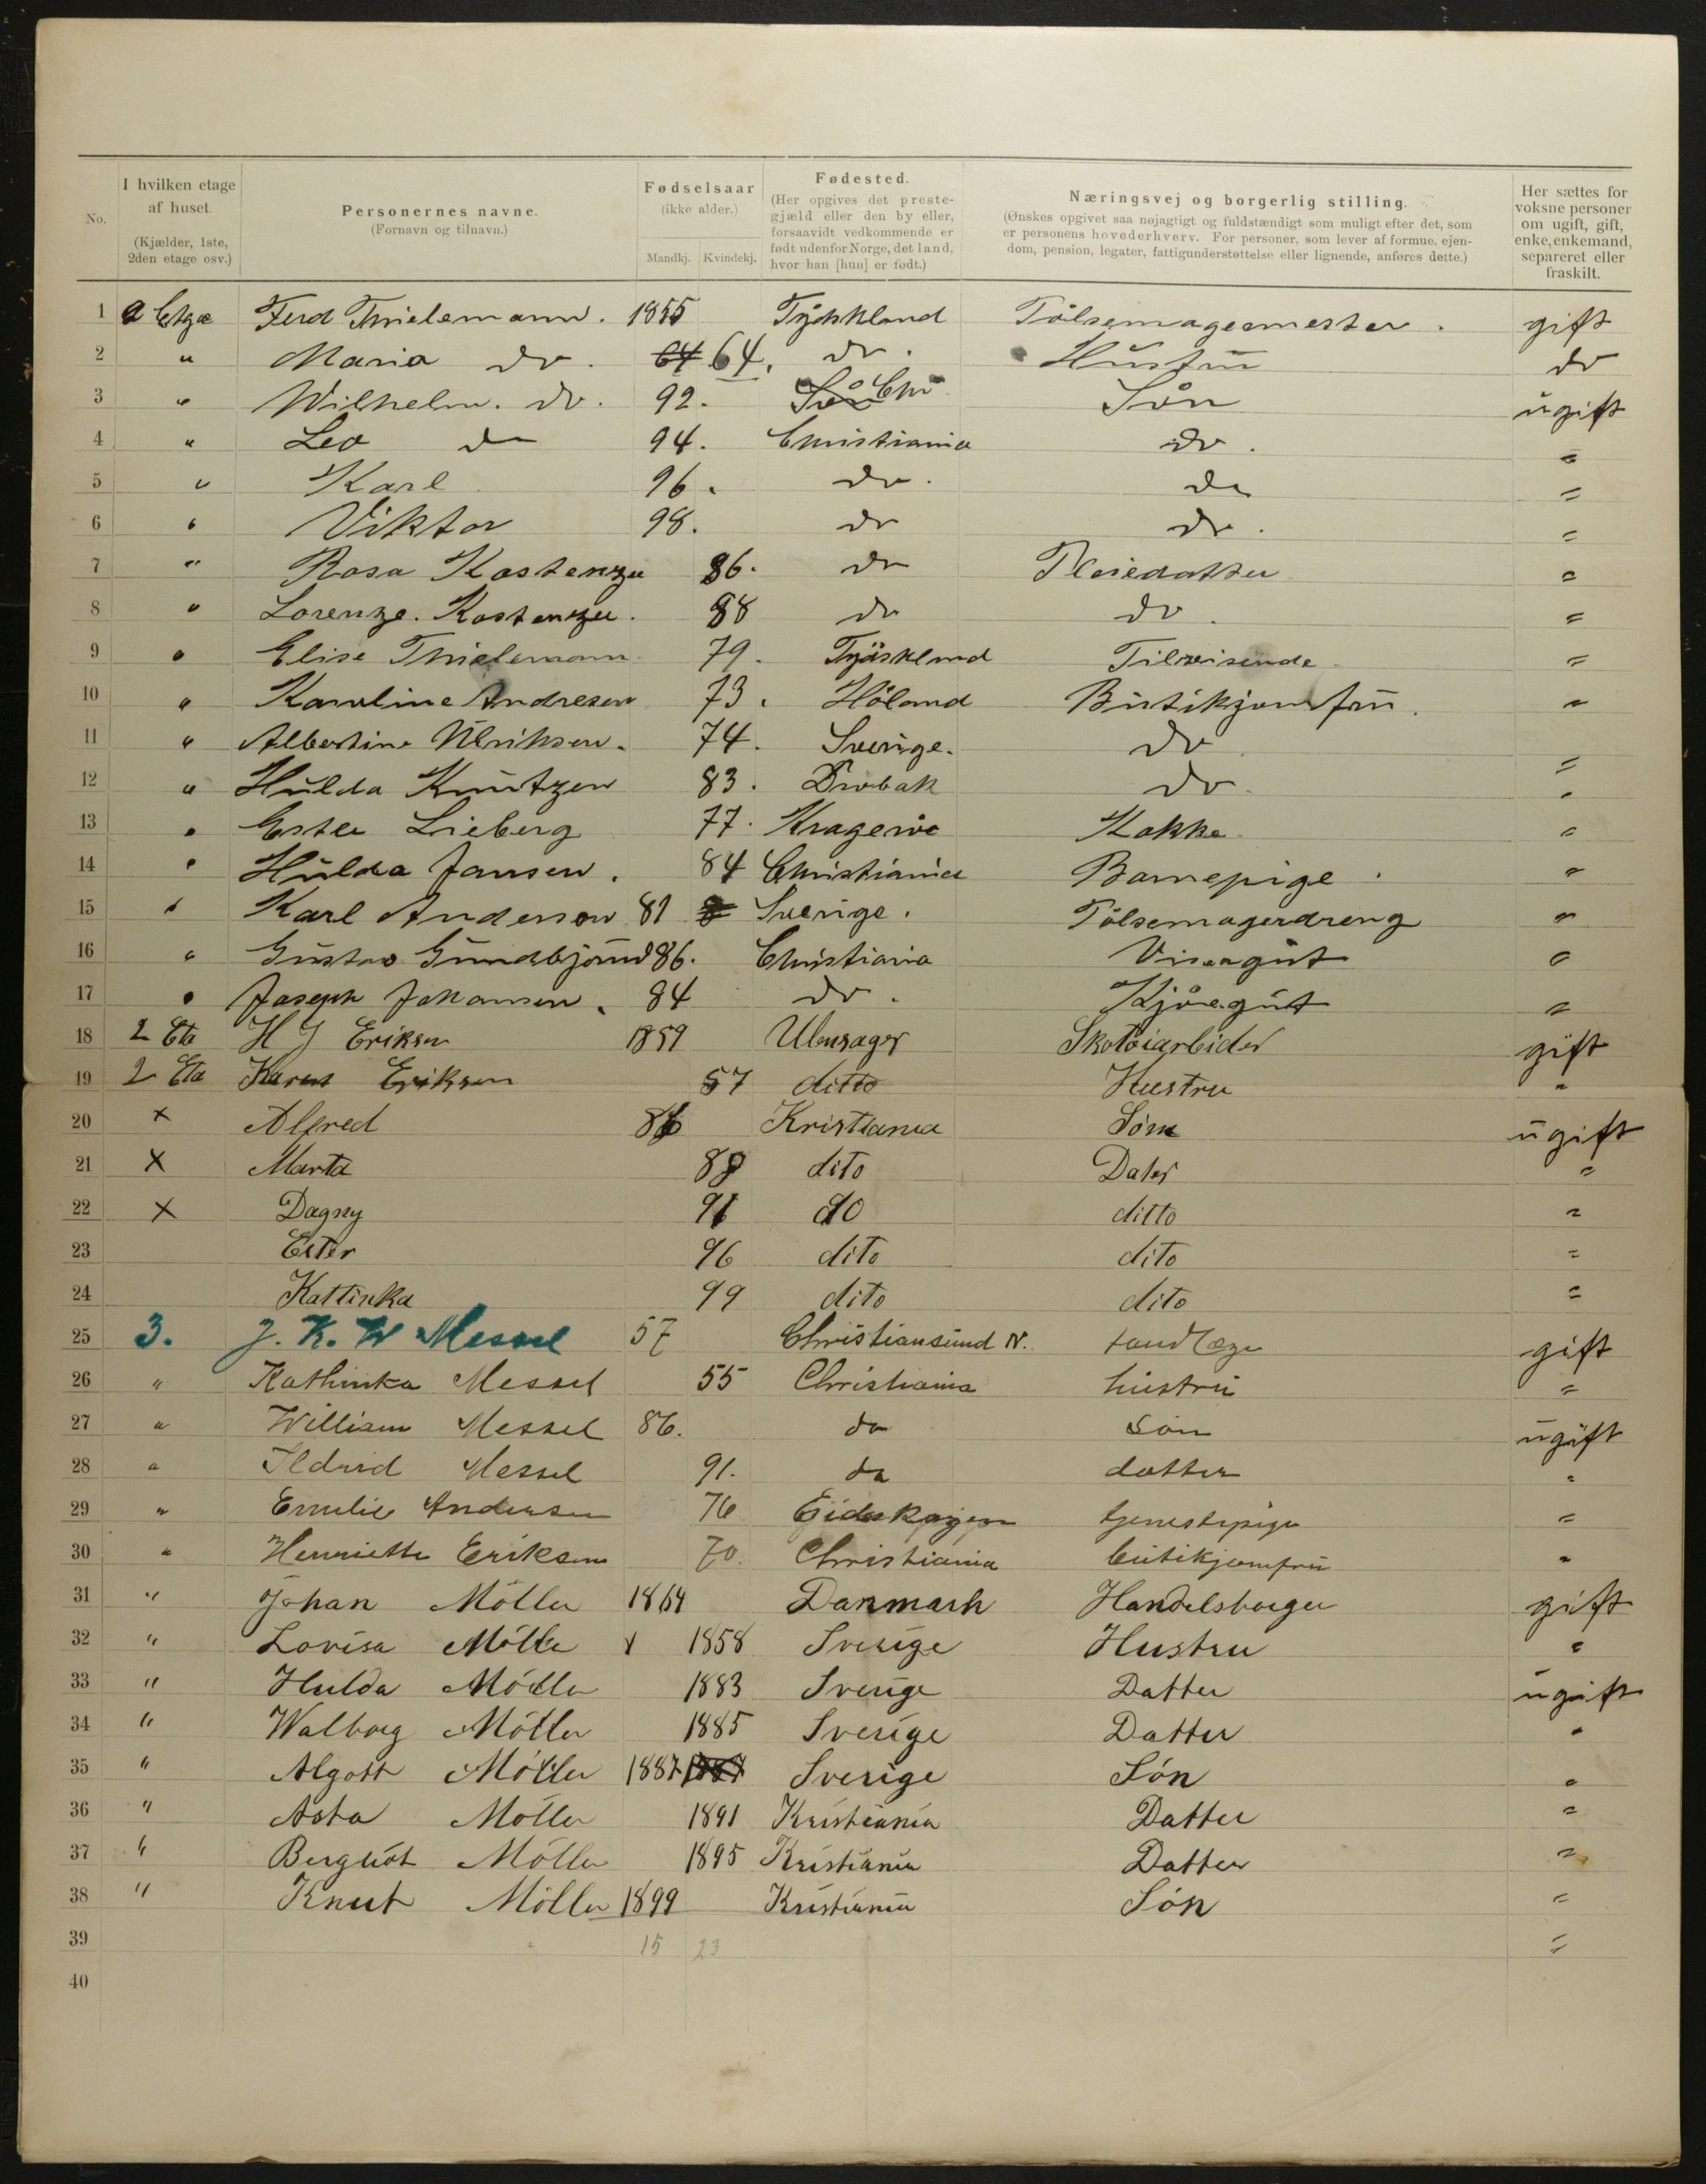 No. I hvilken etage af huset. (Kjælder, 1ste, 2den etage osv.) Personernes navne. (Fornavn og tilnavn.) Fødselsaar (ikke alder.) Mandkj. Kvindekj. Fødested. (Her opgives det prestegjæld eller den by eller, forsaavidt vedkommende er født udenfor Norge, det land, hvor han [hun] er født.) Næringsvej og borgerlig stilling. (Ønskes opgivet saa nøjagtigt og fuldstændigt som muligt efter det, som er personens hovederhverv. For personer, som lever af formue, ejendom, pension, legater, fattigunderstøttelse eller lignende, anføres dette.) Her sættes for voksne personer om ugift, gift, enke, enkemand, separeret eller fraskilt.
1 2 Etge Ferd Thielemann. 1855 Tydskland Pølsemagermester. gift
2 " Maria do. 64. do. Hustru do
3 " Wilhelm. do. 92. Chr Søn ugift
4 " Leo do 94. Christiania do. "
5 " Karl 96. do. do "
6 " Viktor 98. do do. "
7 " Rosa Kostenzer 86. do Pleiedatter "
8 " Lorenze. Kostenzer. 88 do do. "
9 " Elise Thielemann 79. Tydskland Tilreisende "
10 " Karoline Andresen 73. Høland Butikjomfru. "
11 " Albertine Ulriksen. 74. Sverige. do "
12 " Hulda Knutzen 83. Drøbak do "
13 " Ester Lieberg 77. Kragerø Kokke "
14 " Hulda Jansen. 84 Christiania Barnepige. "
15 " Karl Anderson 81 Sverige. Pølsemagerdreng "
16 " Gustav 86. Christiania Visergut "
17 " Joseph Johansen. 84 do. Kjøregut "
18 2 Eta H J Eriksen 1859 Ulensager Skotøiarbeider gift
19 2 Eta Karen Eriksen 57 ditto Hustru "
20 x Alfred 86 Kristiania Sønn ugift
21 x Marta 88 dito Dater "
22 x Dagny 91 do ditto "
23 Ester 96 dito dito "
24 Kattinka 99 dito dito "
25 3. J. K. W Messel 57 Christiansund N. tandlæge gift
26 " Kathinka Messel 55 Christiania hustru "
27 " William Messel 86. do søn ugift
28 " Ildrid Messel 91. do datter "
29 " Emilie Andersen 76 Eidskogen tjenestepige "
30 " Henriette Eriksen 70. Christiania butikjomfru "
31 " Johan Möller 1864 Danmark Handelsborger gift
32 " Lovisa Möller 1858 Sverige Hustru "
33 " Hulda Möller 1883 Sverige Datter ugift
34 " Walborg Möller 1885 Sverige Datter "
35 " Algott Möller 1887 Sverige Són "
36 " Asta Möller 1891 Kristiania Datter "
37 " Bergliot Möller 1895 Kristiania Datter "
38 " Knut Möller 1899 Kristiania Són "
39 15 23 "
40